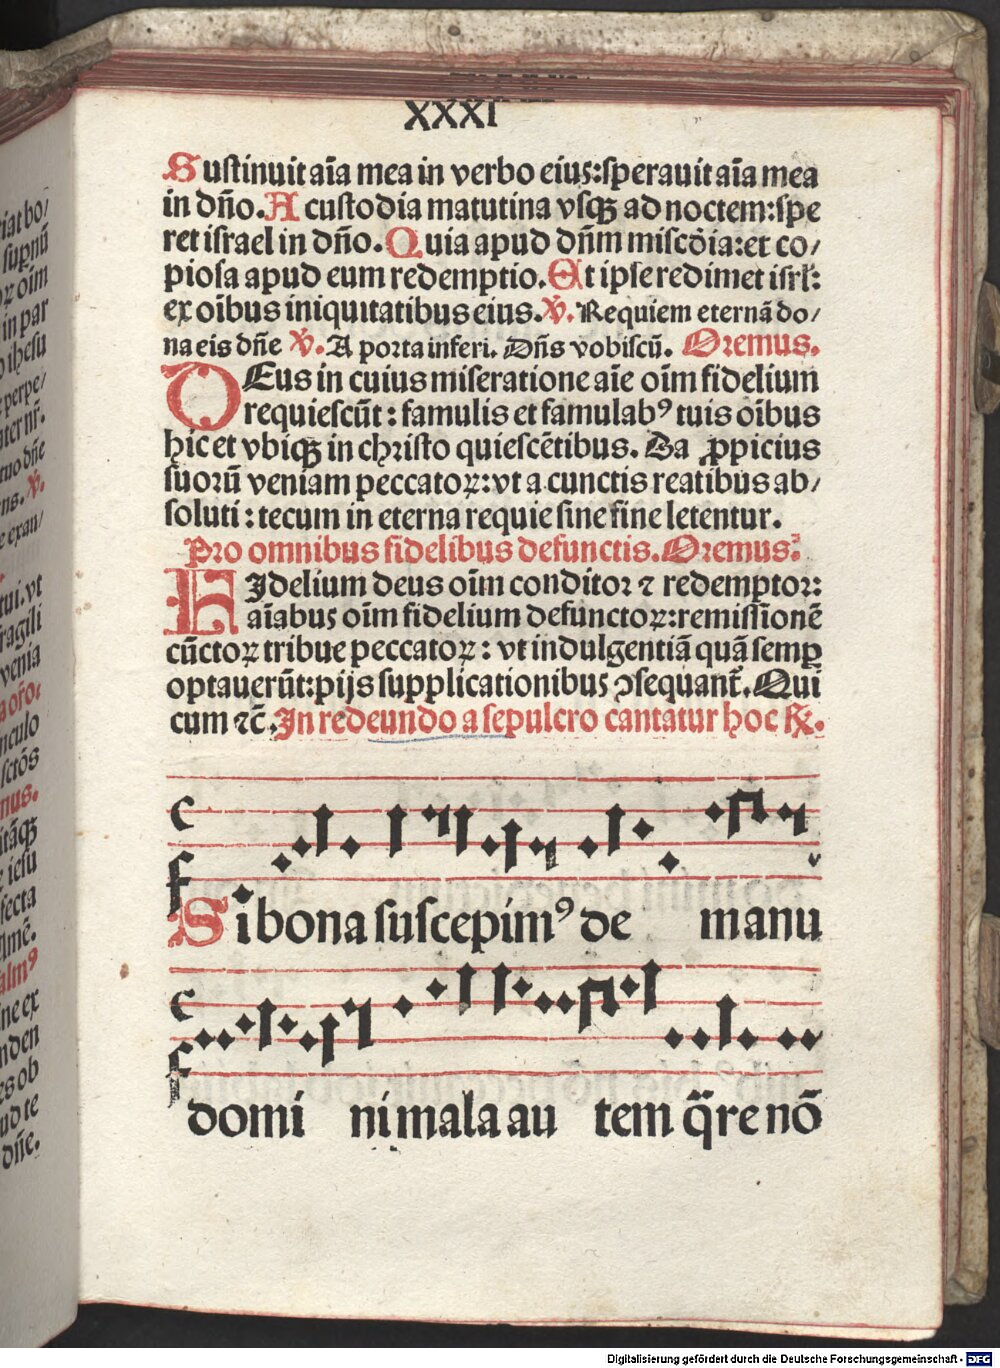 XXXI
Sustinuit aīa mea in verbo eius:sperauit aīa mea
in dn̄o. A custodia matutina vsqꝫ ad noctem:spe
ret israel in dn̄o. Quia apud dn̄m misc̄dia:et co/
piosa apud eum redemptio. Et ipse redimet isrl̄:
ex oībus iniquitatibus eius. ℣. Requiem eternā do/
na eis dn̄e ℣. A porta inferi. Dn̄s vobiscū. Oremus.
DEus in cuius miseratione aīe oīm fidelium
requiescūt: famulis et famulabꝰ tuis oībus
hic et vbiqꝫ in christo quiescētibus. Da ꝓpicius
suorū veniam peccatoꝝ:vt a cunctis reatibus ab/
soluti: tecum in eterna requie sine fine letentur.
Pro omnibus fidelibus defunctis. Oremus.
FIdelium deus oīm conditor ⁊ redemptor:
aīabus oīm fidelium defunctoꝝ:remissionē
cūctoꝝ tribue peccatoꝝ: vt indulgentiā quā semꝑ
optauerūt:pijs supplicationibus ꝯsequant᷑. Qui
cum ⁊c̄. In redeundo a sepulcro cantatur hoc ℟.
Si bona suscepimꝰ de manu
domi ni mala au tem q̄re nō
riat bo/
supnū
oīm
in par
ihesu
perpe/
ter nr̄.
tuo dn̄e
ens. ℣.
e exan/
tui. vt
ragili
venia
nculo
sctōs
mus.
itāqꝫ
iesu
fecta
lmē.
almꝰ
ne ex
nden
es ob
ud te
dn̄e.
Digitalisierung gefördert durch die Deutsche Forschungsgemeinschaft - DFG